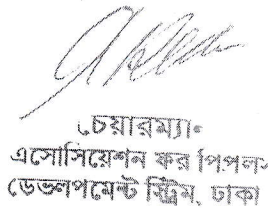 চেয়ারম্যান
এসোসিয়েশন ফর পিপলস
ডেভলপমেন্ট স্ট্রিম, ঢাকা